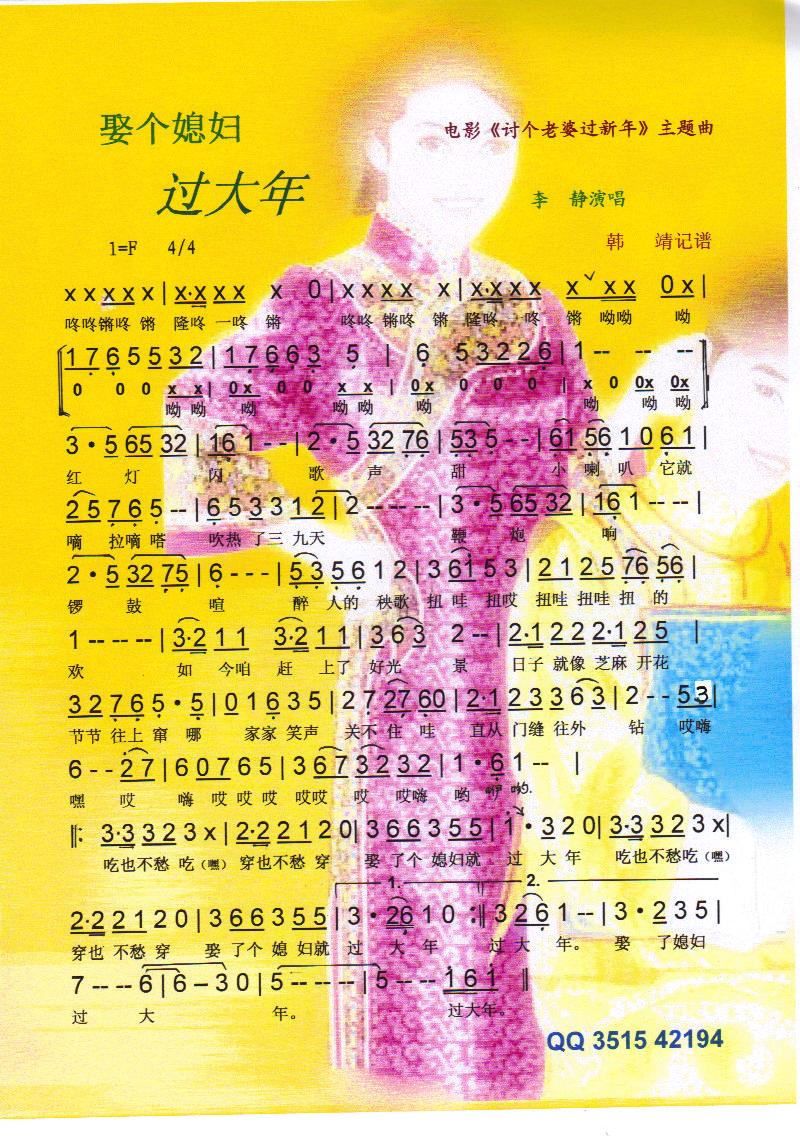 娶个媳妇
电影《讨个老婆过新年》主题曲
过大年
李 静演唱
1=F 4/4
韩 靖记谱
x x x x x | x·x x x x 0 | x x x x x | x·x x x x ˇ x x 0 x |
咚咚锵咚 锵 隆咚 一咚 锵 咚咚 锵咚 锵 隆咚 一咚 锵 呦呦 呦
1 7 6 5 5 3 2 | 1 7 6 6 3 5 | 6 5 3 2 2 6 | 1 -- -- --
0 0 0 x x | 0x 0 0 x x | 0x 0 0 0 | x 0 0x 0x
呦 呦 呦 呦 呦 呦 呦 呦 呦
3 · 5 65 32 | 16 1 - - | 2 · 5 32 76 | 53 5 - - | 61 56 1 0 6 1 |
红 灯 闪 歌 声 甜 小 喇 叭 它就
2 5 7 6 5 -- | 6 5 3 3 1 2 | 2 -- -- -- | 3 · 5 65 32 | 16 1 -- -- |
嘀 拉嘀 嗒 吹热 了三 九天 鞭 炮 响
2 · 5 32 75 | 6 - - - | 5 3 5 6 1 2 | 3 61 5 3 | 2 1 2 5 76 56 |
锣 鼓 喧 醉 人的 秧歌 扭 哇 扭哎 扭哇 扭哇 扭 的
1 -- -- -- | 3·2 1 1 3·2 1 1 | 3 6 3 2 -- | 2·1 2 2 2·1 2 5 |
欢 如 今咱 赶 上了 好光 景 日子 就像 芝麻 开花
3 2 7 6 5 · 5 | 0 1 6 3 5 | 2 7 27 60 | 2·1 2 3 3 6 3 | 2 - - 5 3 |
节节 往上 窜 哪 家家 笑声 关不 住 哇 直从 门缝 往外 钻 哎嗨
6 - - 2 7 | 6 0 7 6 5 | 3 6 7 3 2 3 2 | 1 · 6 1 -- |
嘿 哎 嗨 哎 哎 哎 哎哎 哎 哎嗨 哟 咿 哟.
‖: 3·3 3 2 3 x | 2·2 2 1 2 0 | 3 6 6 3 5 5 | 1 · 3 2 0 | 3·3 3 2 3 x |
吃也不愁 吃（嘿） 穿也不愁 穿 娶 了个 媳妇就 过 大 年 吃也不愁吃（嘿）
1. 2.
2·2 2 1 2 0 | 3 6 6 3 5 5 | 3 · 26 1 0 :‖ 3 2 6 1 -- | 3 · 2 3 5 |
穿也 不愁 穿 娶 了个 媳 妇就 过 大 年 过 大 年。 娶 了媳妇
7 -- -- 6 | 6 – 3 0 | 5 -- -- -- | 5 -- -- 1 6 1 ‖
过 大 年。 过大年。
QQ 3515 42194